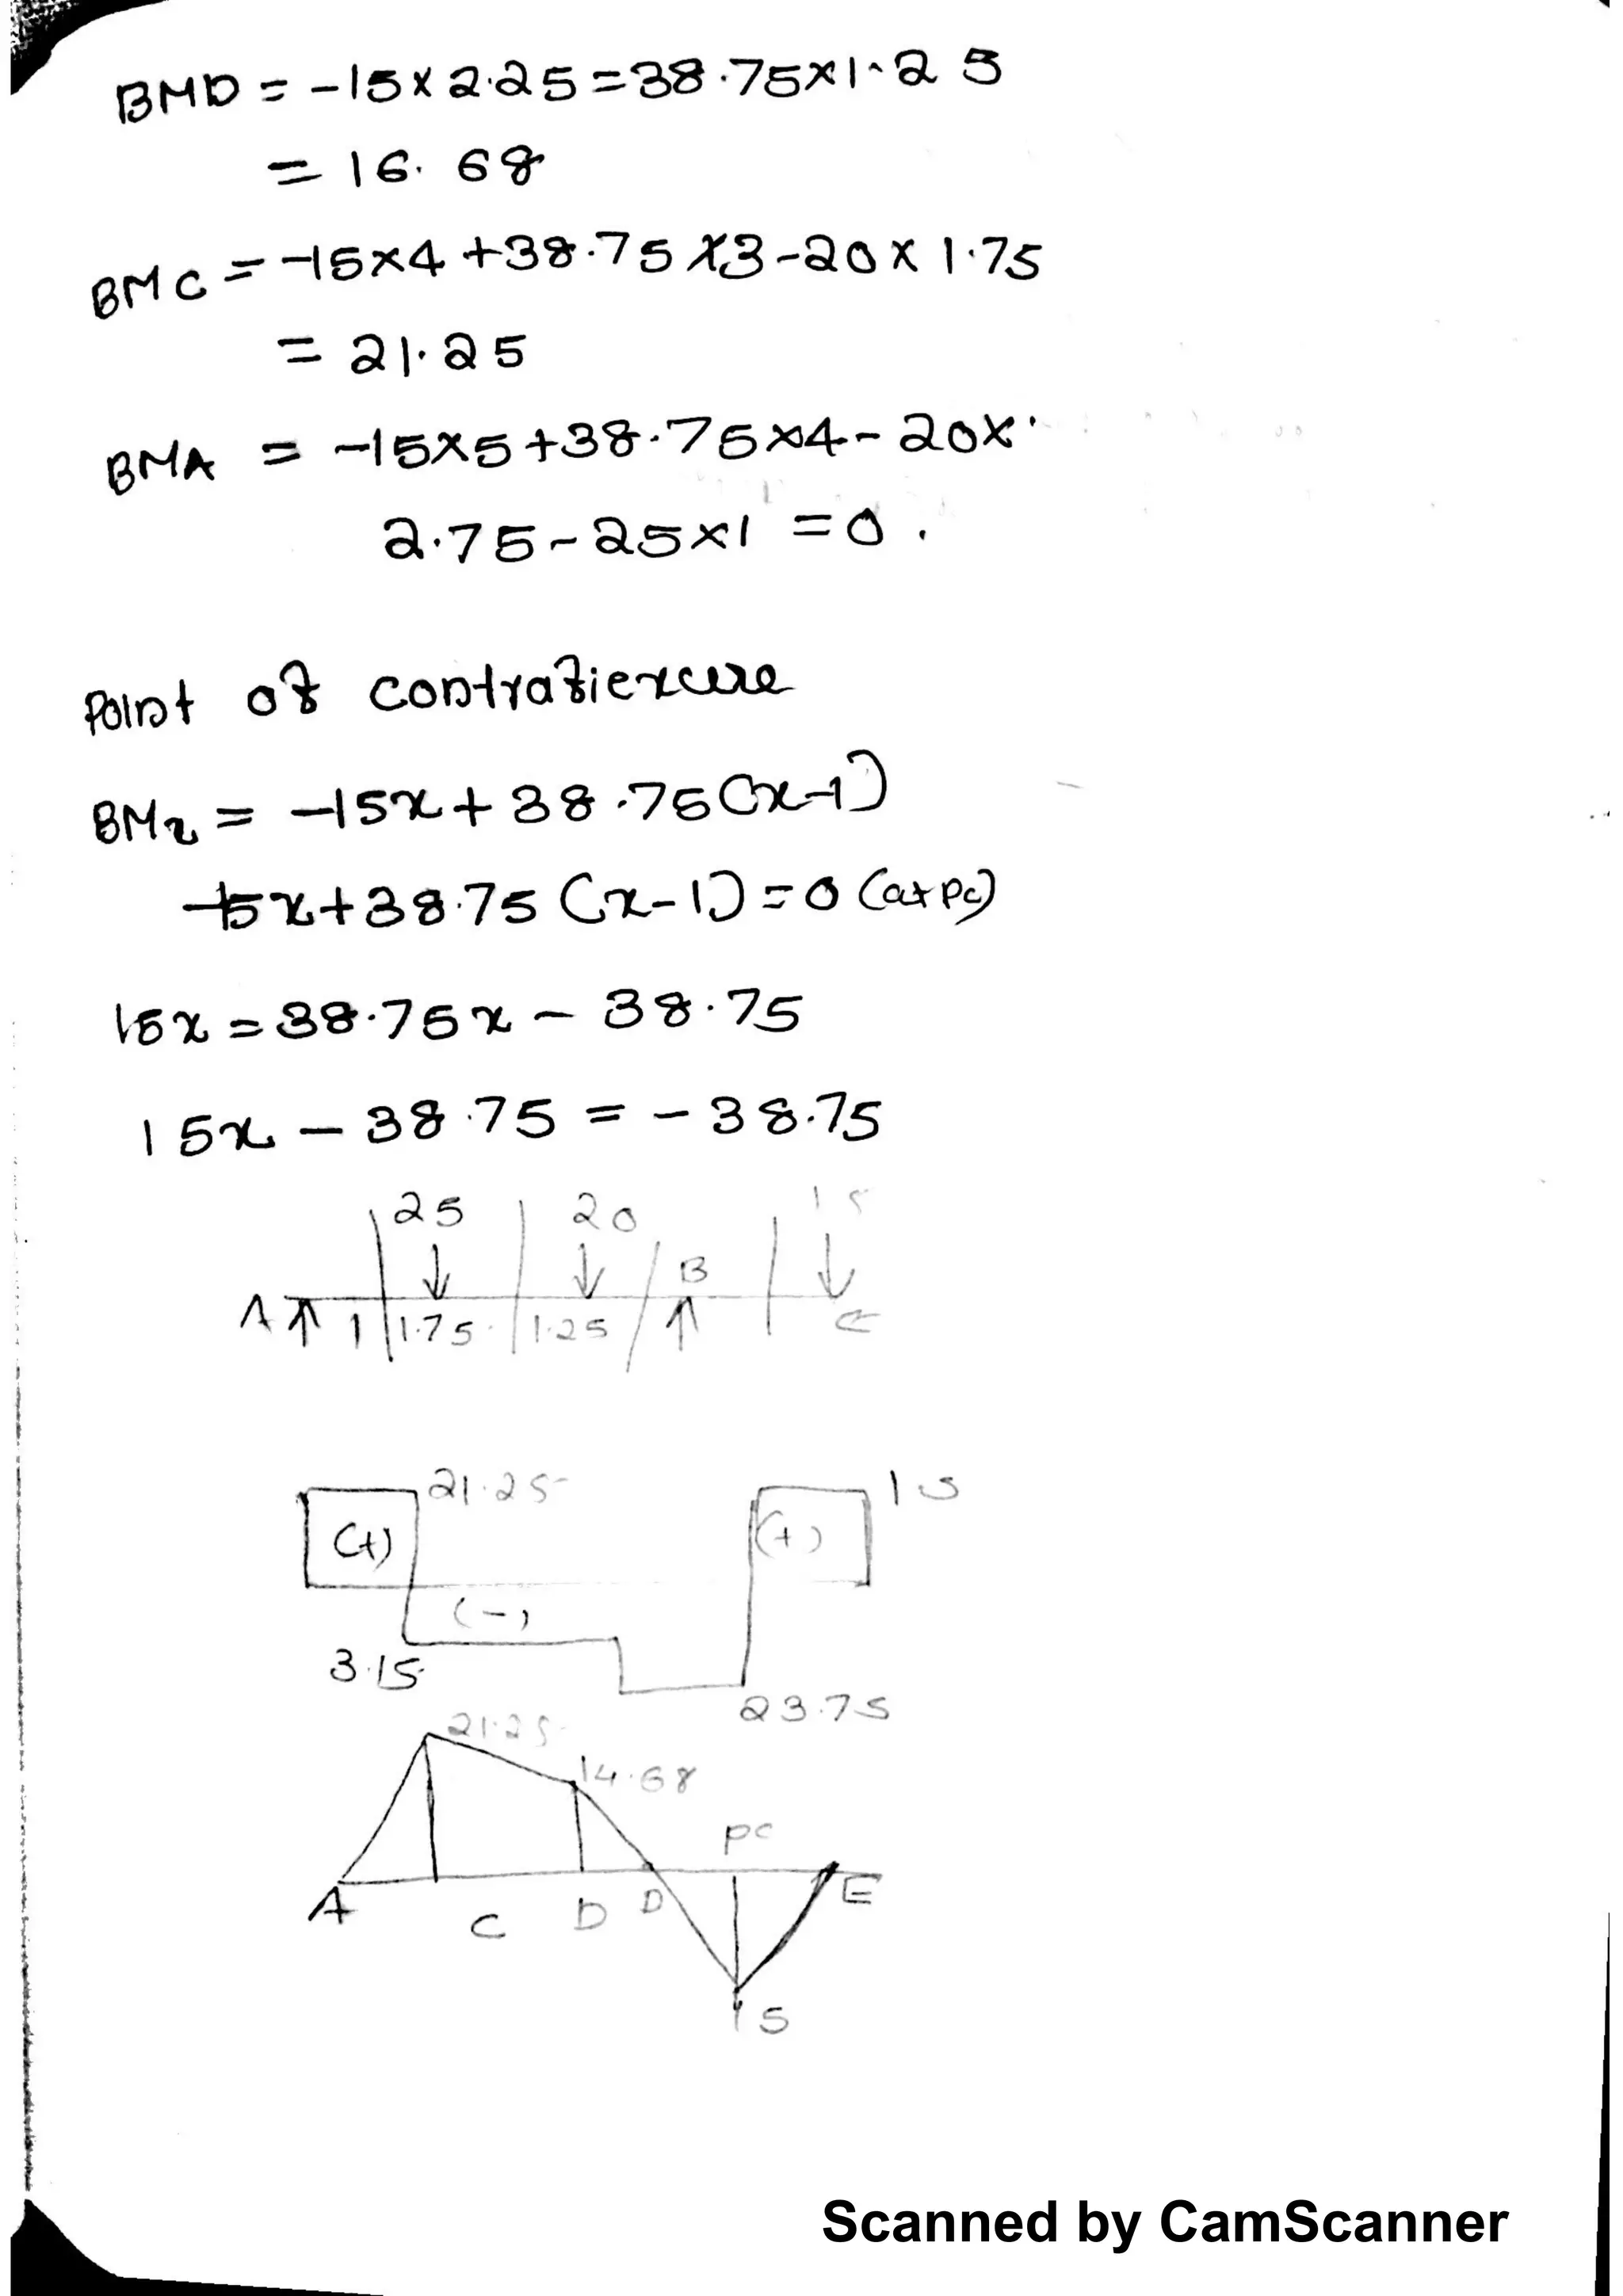 BMD = -15×2.25=38.75×1.25
= 16.68
BMC = -15×4+38.75×3-20×1.75
= 21.25
BMA = -15×5+38.75×4-20×
2.75-25×1 =0.
Point of contrafiexcure
BMx = -15x+38.75(x-1)
-15x+38.75(x-1)=0 (at pc)
15x=38.75x-38.75
15x-38.75=-38.75
25 20 15
B
A 1 1.75 1.25 E
21.25 15
(+) (+)
(-)
3.15
23.75
21.25
14.68
PC
A C D D E
15
Scanned by CamScanner